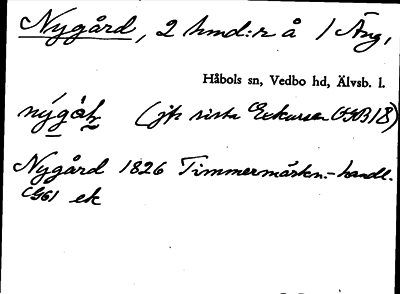 Nygård, 2 hmd:r å 1 Äng,
Håbols sn, Vedbo hd, Älvsb. l.
(jfr sista Exkursen OGB 18)
Nygård 1826 Timmermärkn.-handl.
ek